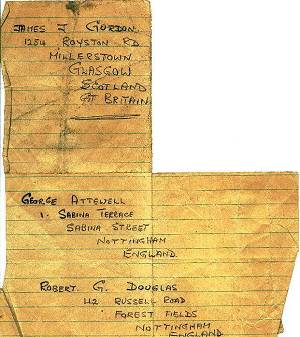 JAMES J GORDON
1254 ROYSTON RD
MILLERSTOWN
GLASGOW
SCOTLAND
GT BRITAIN
GEORGE ATTEWELL
1. SABINA TERRACE
SABINA STREET
NOTTINGHAM
ENGLAND.
ROBERT G. DOUGLAS
42 RUSSELL ROAD
FOREST FIELDS
NOTTINGHAM
ENGLAND.